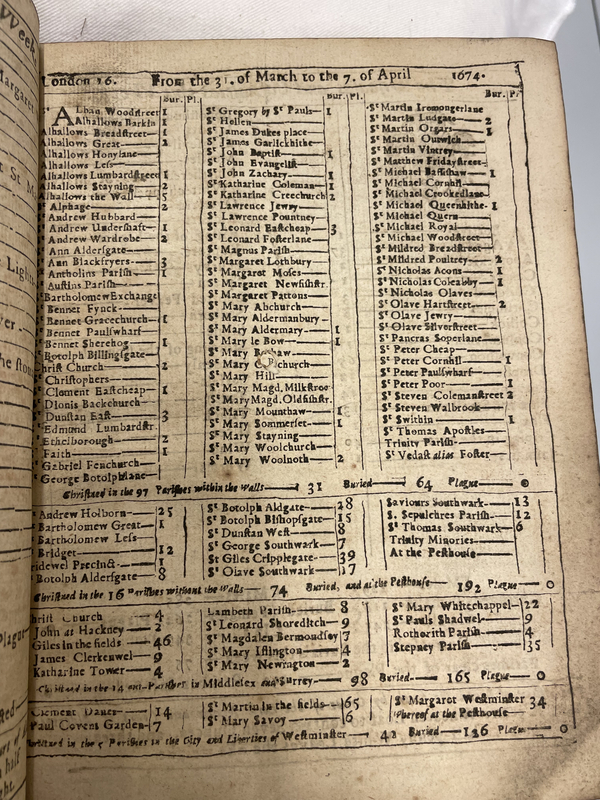 London 16. From the 31. of March to the 7. of April 1674.
Bur. Pl.
Alban Woodstreet 1
Alhallows Barkin 1
Alhallows Breadstreet 1
Alhallows Great 2
Alhallows Honylane
Alhallows Less
Alhallows Lumbardstreet 1
Alhallows Stayning 2
Alhallows the Wall 5
Alphage 2
Andrew Hubbard
Andrew Undershaft 1
Andrew Wardrobe 2
Ann Aldersgate
Ann Blackfryers 3
Antholins Parish 1
Austins Parish
Bartholomew Exchange
Bennet Fynck
Bennet Gracechurch 1
Bennet Paulswharf
Bennet Sherehog 1
Botolph Billingsgate
Christ Church 2
Christophers
Clement Eastcheap 1
Dionis Backchurch
Dunstan East 3
Edmund Lumbardstr.
Ethelborough 2
Faith 1
Gabriel Fenchurch
George Botolphlane
Bur. Pl.
St Gregory by St Pauls 1
St Hellen
St James Dukes place
St James Garlickhithe
St John Baptist 1
St John Evangelist
St John Zachary 1
St Katharine Coleman 1
St Katharine Creechurch 2
St Lawrence Jewry
St Lawrence Pountney
St Leonard Eastcheap 3
St Leonard Fosterlane
St Magnus Parish
St Margaret Lothbury
St Margaret Moses
St Margaret Newfishstr.
St Margaret Pattons
St Mary Abchurch
St Mary Aldermanbury
St Mary Aldermary 1
St Mary le Bow 1
St Mary
St Mary church
St Mary Hill
St Mary Magd. Milkstree
St Mary Magd. Oldfishstr.
St Mary Mounthaw 1
St Mary Sommerset 1
St Mary Stayning
St Mary Woolchurch
St Mary Woolnoth 2
Bur. Pl.
St Martin Iremongerlane
St Martin Ludgate 2
St Martin Orgars 1
St Martin Outwich
St Martin Vintrey
St Matthew Fridaystreet
St Michael Bassishaw 1
St Michael Cornhil
St Michael Crookedlane
St Michael Queenhithe 1
St Michael Quern
St Michael Royal
St Michael Woodstreet
St Mildred Breadstreet
St Mildred Poultrey 2
St Nicholas Acons 1
St Nicholas Coleabby 1
St Nicholas Olaves
St Olave Hartstreet 2
St Olave Jewry
St Olave Silverstreet
St Pancras Soperlane
St Peter Cheap
St Peter Cornhil 1
St Peter Paulswharf
St Peter Poor 1
St Steven Colemanstreet 2
St Steven Walbrook
St Swithin 1
St Thomas Apostles
Trinity Parish
St Vedast alias Foster
Christned in the 97 Parishes within the Walls 31 Buried 64 Plague 0
Andrew Holborn 25
Bartholomew Great 1
Bartholomew Less
Bridget 12
Bridewel Precinct 1
Botolph Aldersgate 8
St Botolph Aldgate 28
St Botolph Bishopsgate 15
St Dunstan West 8
St George Southwark 7
St Giles Cripplegate 39
St Olave Southwark 17
Saviours Southwark 13
S. Sepulchres Parish 12
St Thomas Southwark 6
Trinity Minories
At the Pesthouse
Christned in the 16 Parishes without the Walls 74 Buried, and at the Pesthouse 192 Plague 0
Christ Church 4
John at Hackney 2
Giles in the fields 46
James Clerkenwel 9
Katharine Tower 4
Lambeth Parish 8
St Leonard Shoreditch 9
St Magdalen Bermondsey 7
St Mary Islington 4
St Mary Newington 2
St Mary Whitechappel 22
St Pauls Shadwel 9
Rotherith Parish 4
Stepney Parish 35
Christned in the 14 out-Parishes in Middlesex and Surrey 98 Buried 165 Plague 0
Clement Danes 14
Paul Covent Garden 7
St Martin in the fields 65
St Mary Savoy 6
St Margaret Westminster 34
Whereof at the Pesthouse
Christned in the 5 Parishes in the City and Liberties of Westminster 42 Buried 126 Plague 0